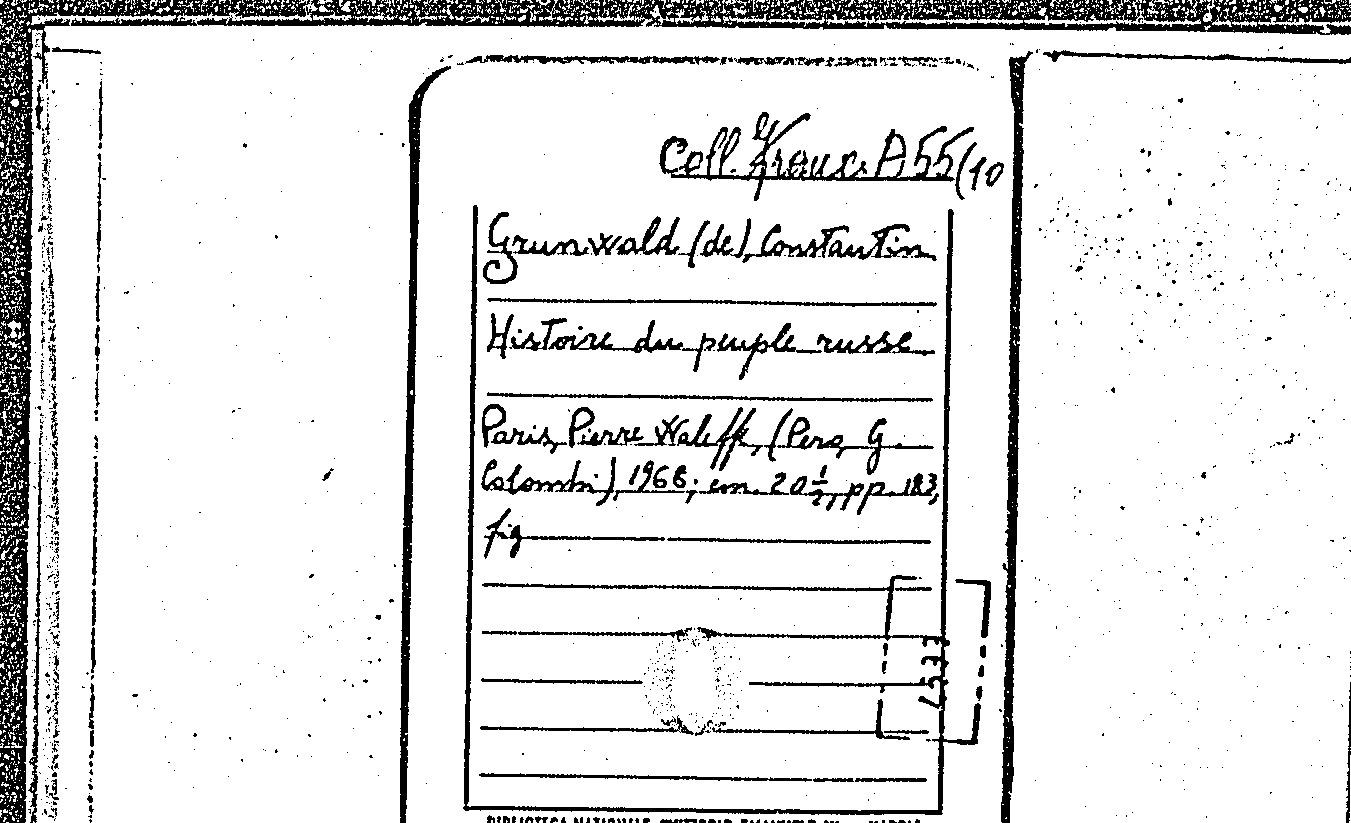 Coll. Franc. A 55/10
Grunwald (de), Constantin
Histoire du peuple russe
Paris, Pierre Waleffe, (Pero, G.
Colombi), 1968; cm. 20 1/2, pp. 183,
fig
BIBLIOTECA NAZIONALE VITTORIO EMANUELE III NAPOLI